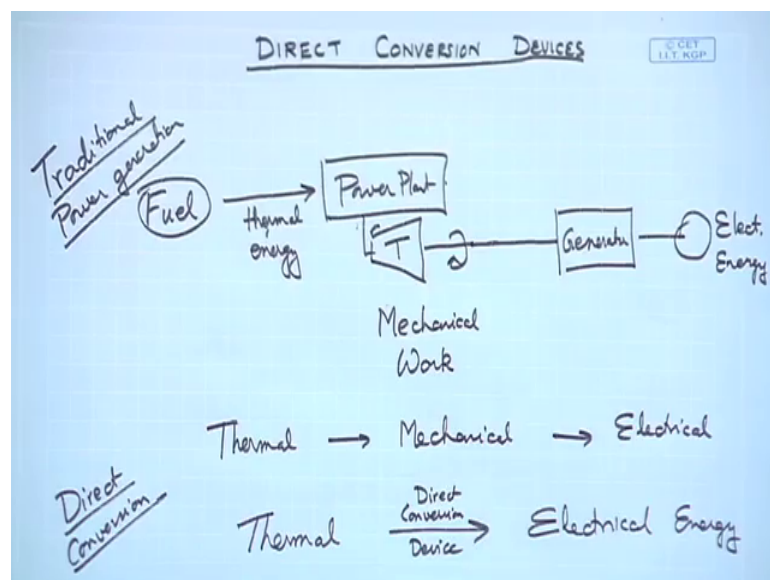 DIRECT CONVERSION DEVICES
© CET
I.I.T. KGP
Traditional
Power generation
Fuel
thermal
energy
Power Plant
T
Generator
Elect.
Energy
Mechanical
Work
Thermal → Mechanical → Electrical
Direct
Conversion
Thermal
Direct
Conversion
Device
Electrical Energy